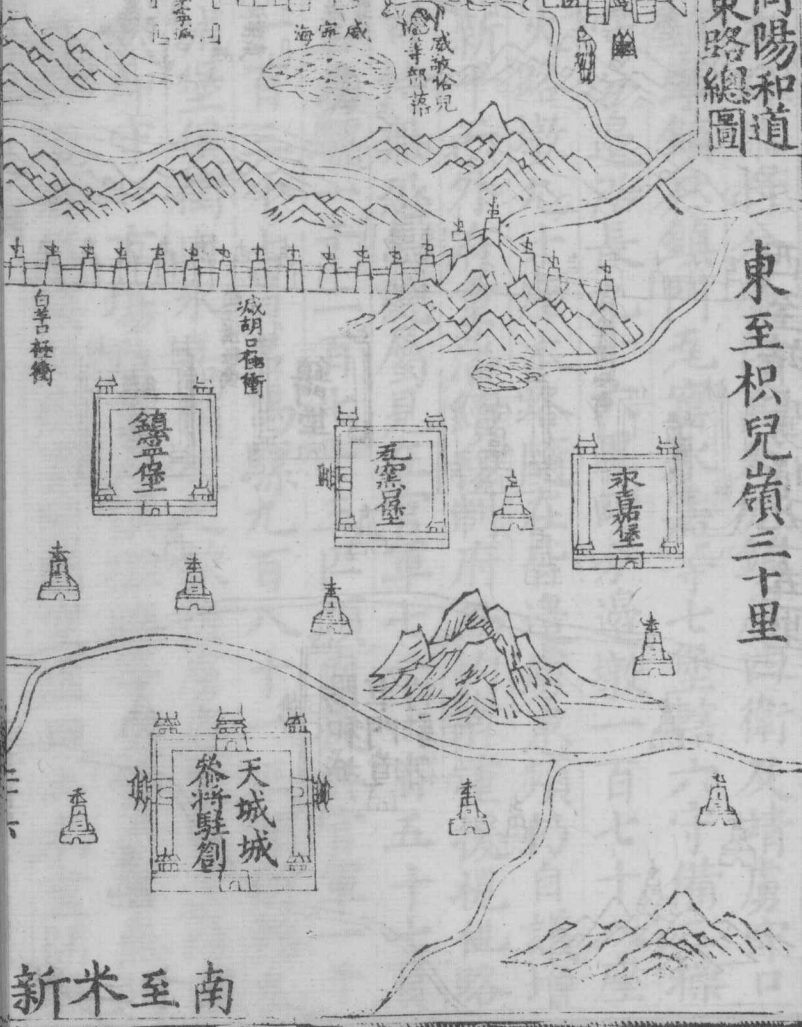 陽和道
東路總圖
東至枳兒嶺三十里
威寧海
威敏恰兒
等部落
滅胡口極衝
白羊口極衝
永嘉堡
瓦窯口堡
鎮寧堡
天城城
叅將駐劄
南至米新